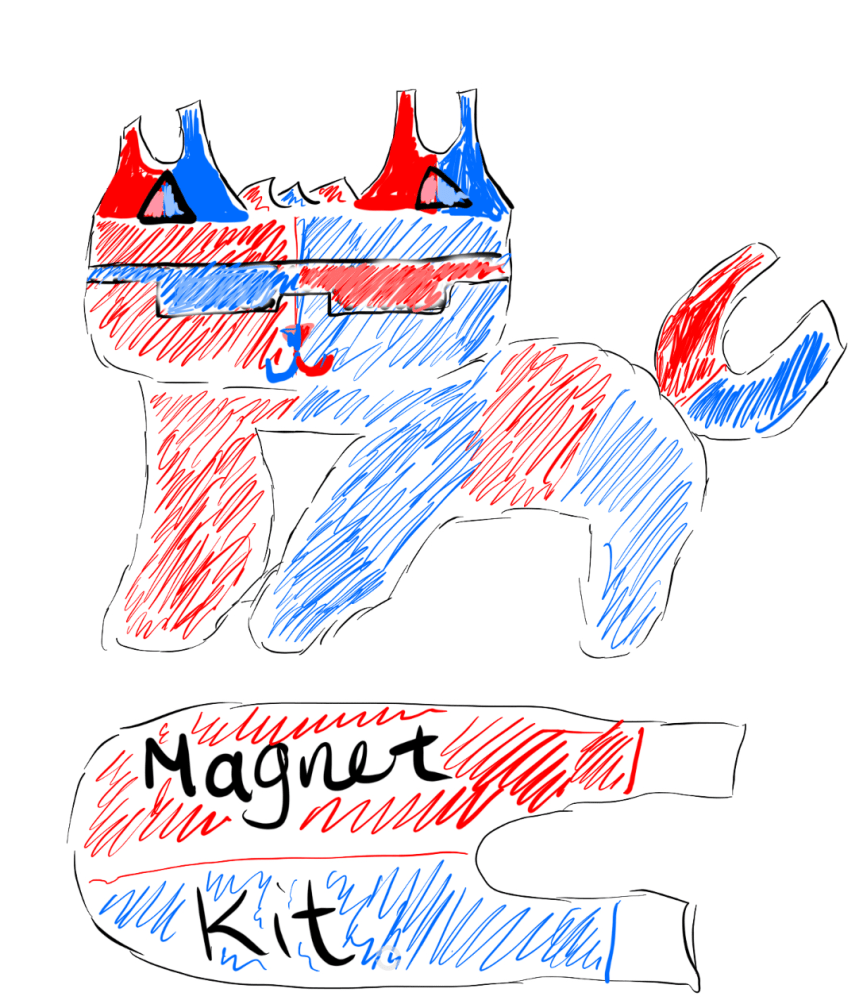 Magnet
Kit